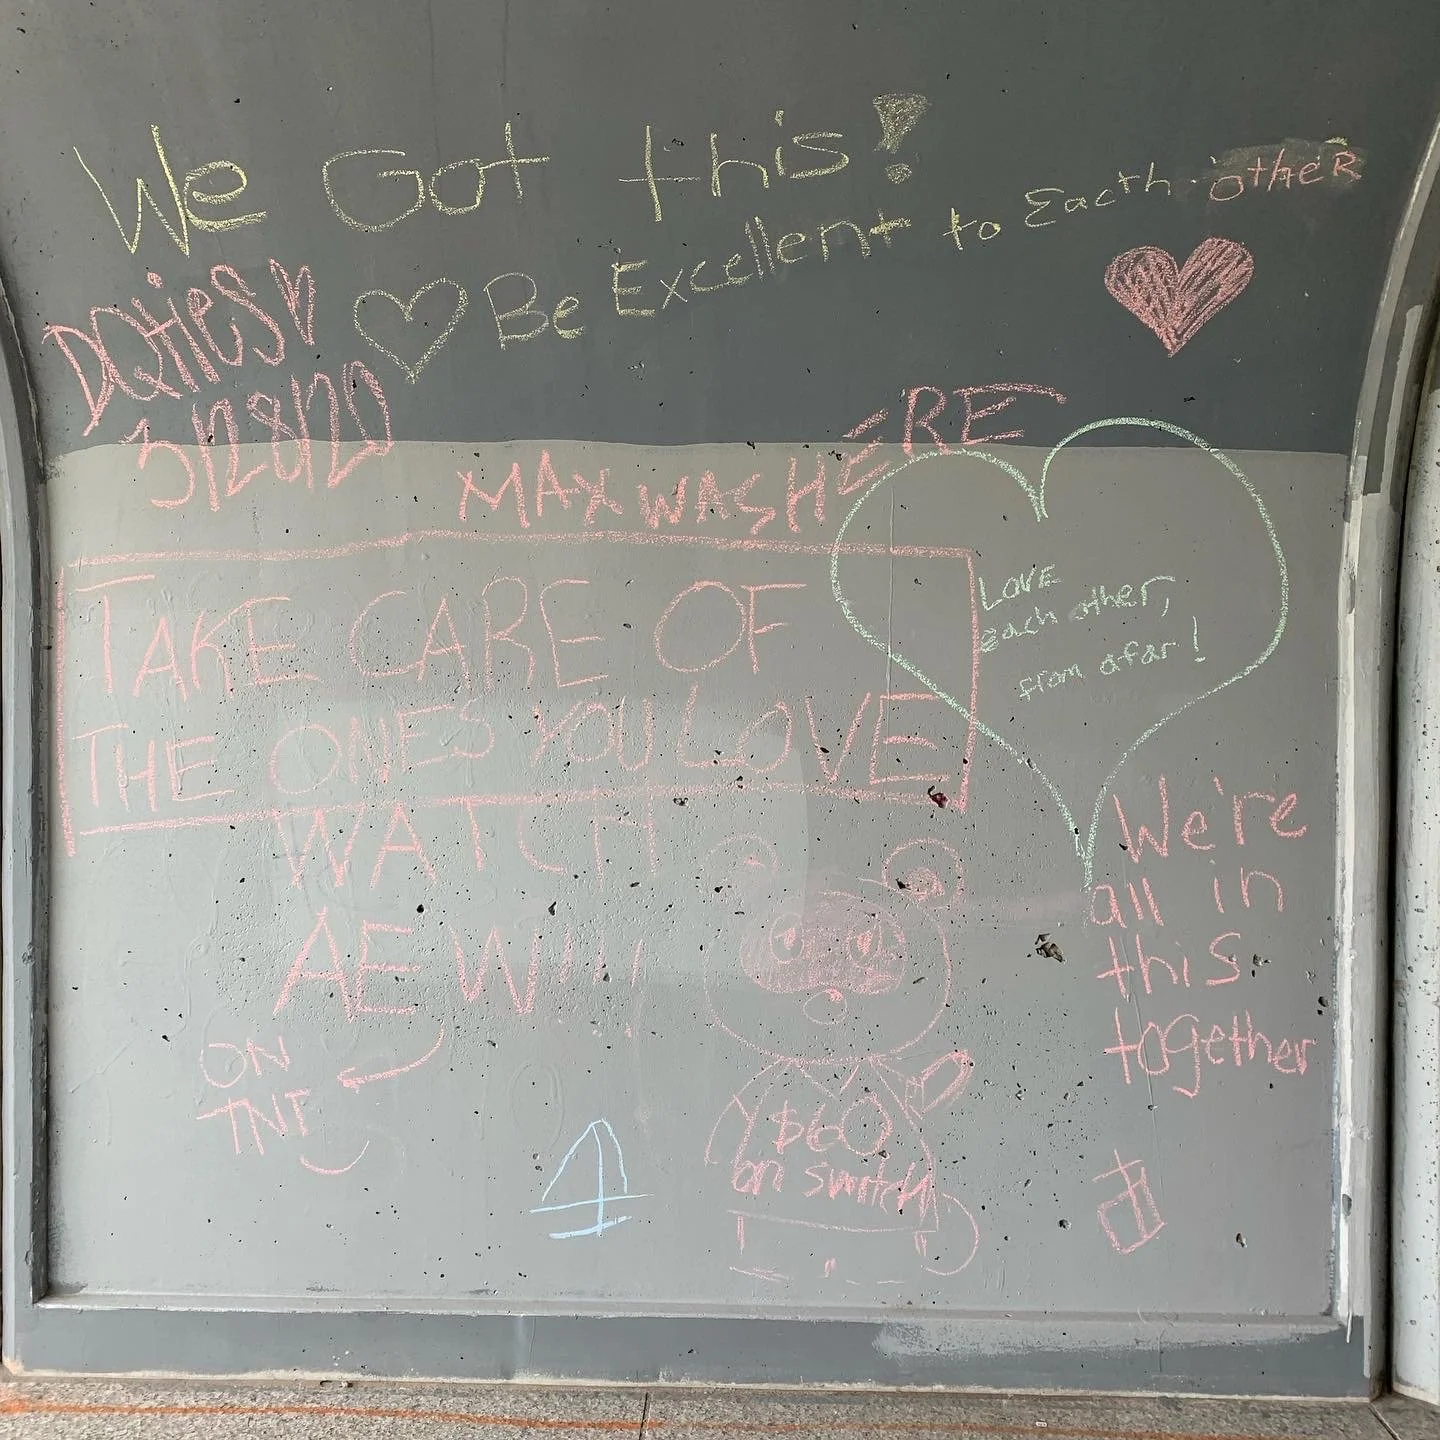 We Got this!
Be Excellent to Eacth other
3/28/20
MAX WAS HERE
TAKE CARE OF
THE ONES YOU LOVE
LOVE
each other,
from afar!
WATCH
AEW!!!
ON
TNT
We're
all in
this
together
$60
on switch